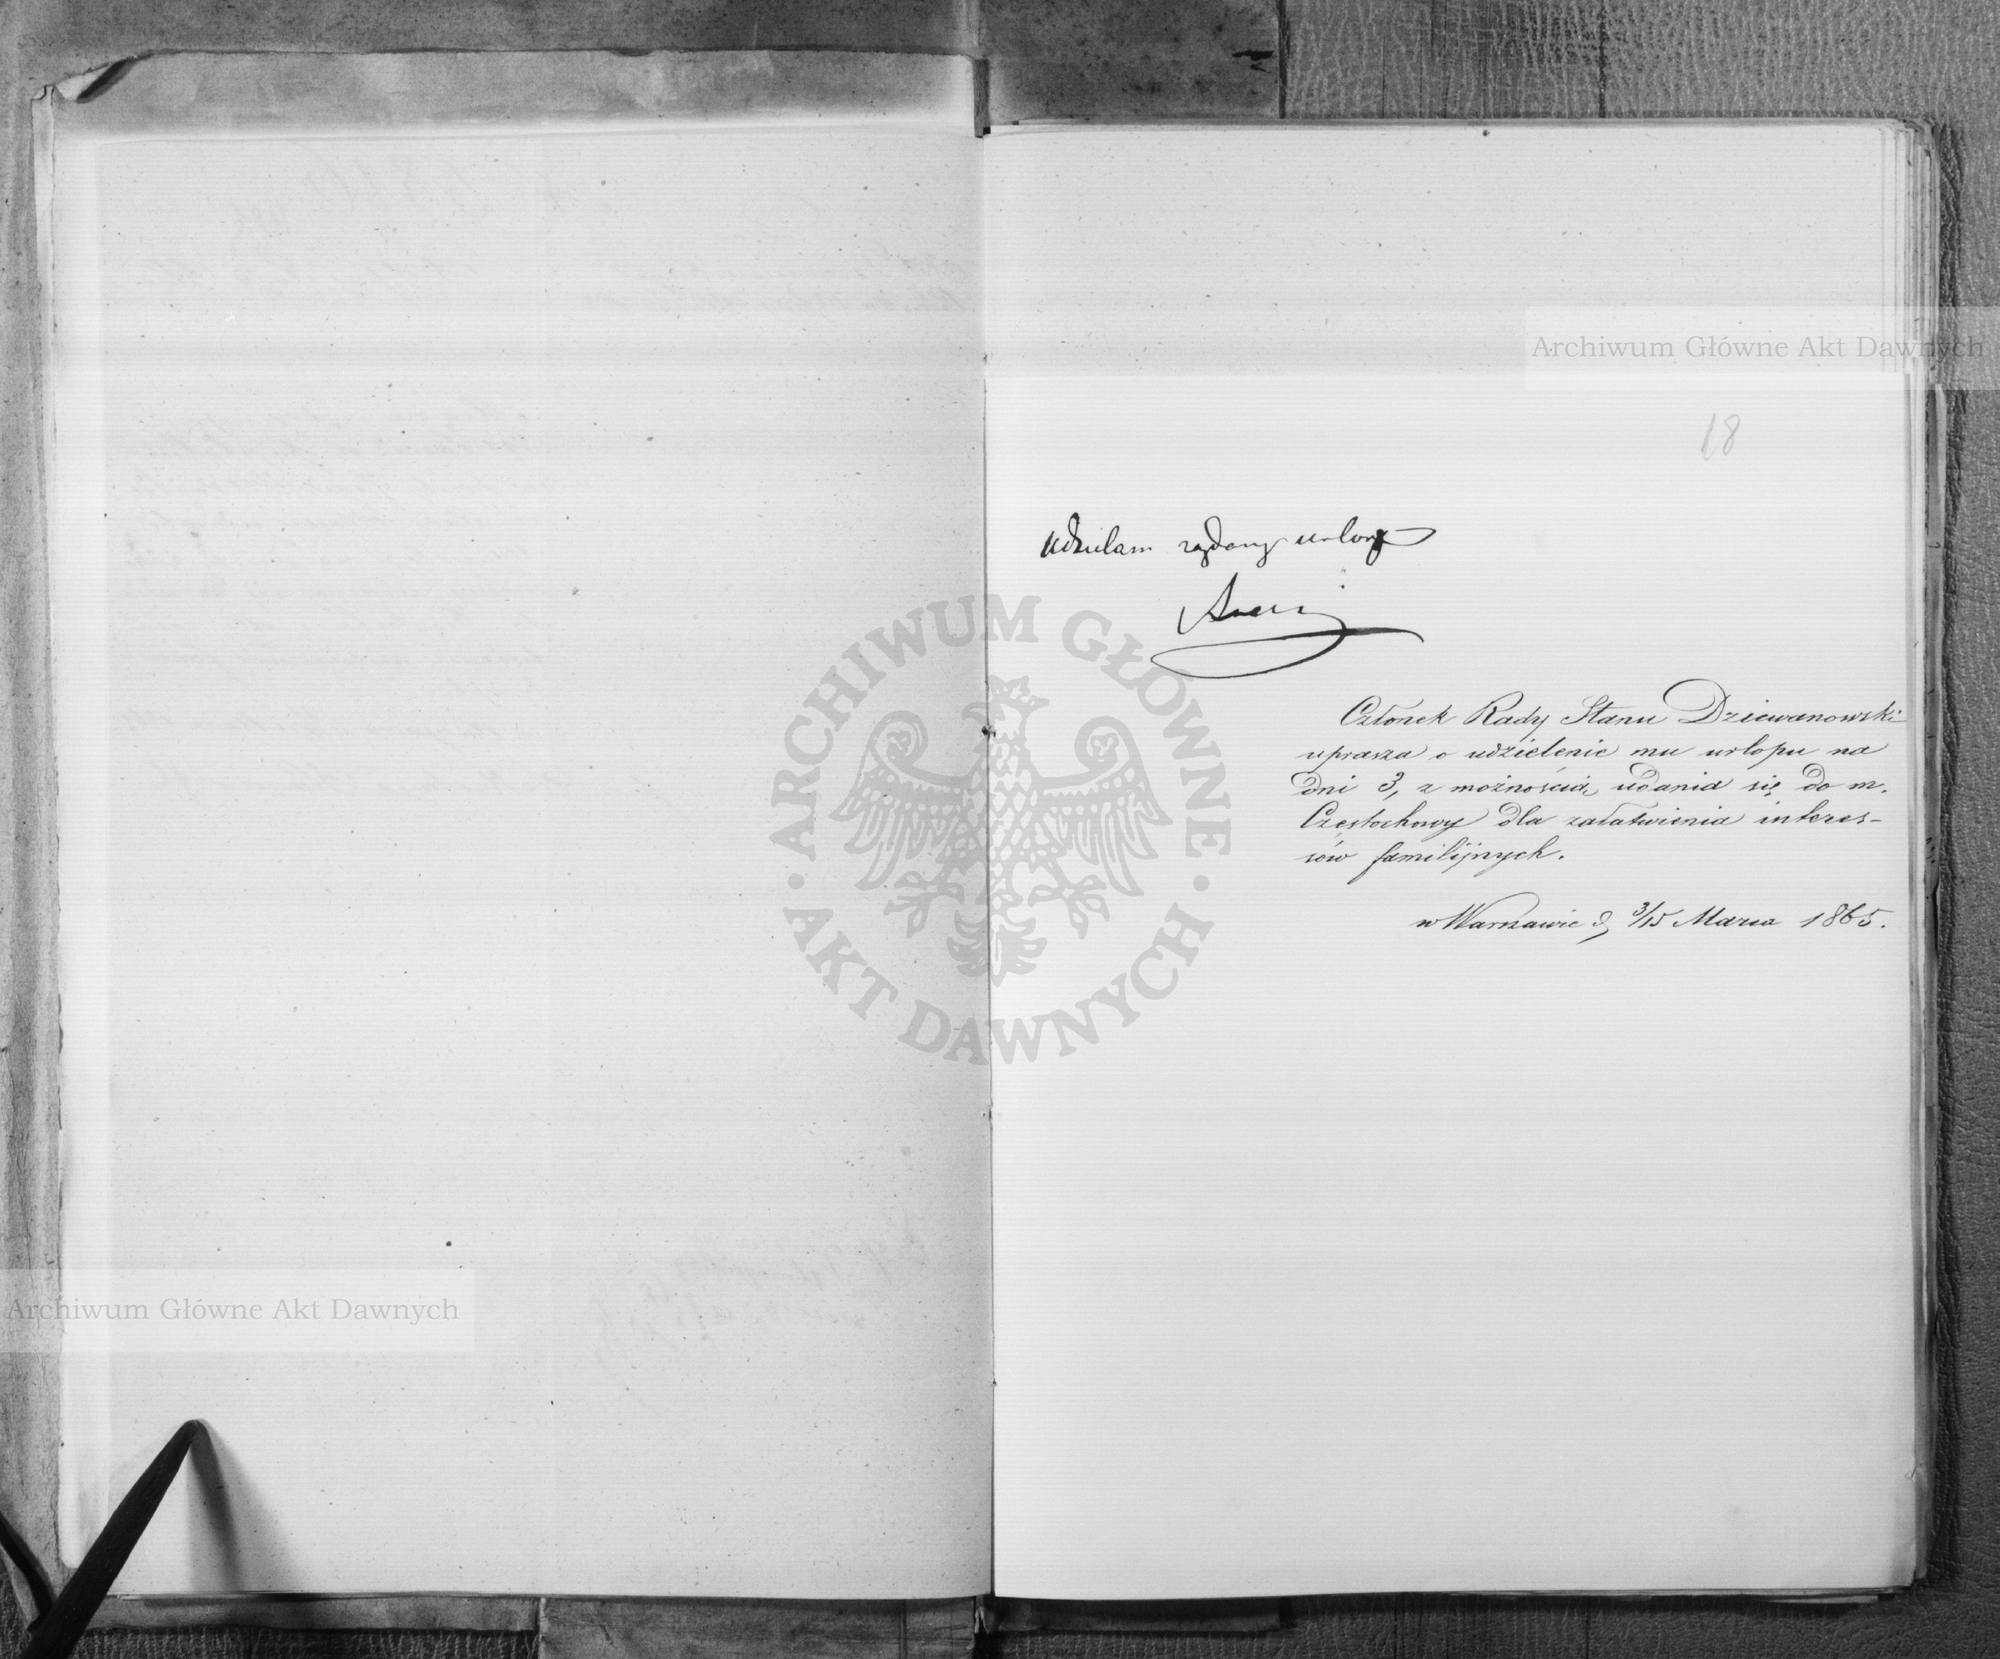 Archiwum Główne Akt Dawnych
18
Udzielam żądany urlop
Członek Rady Stanu Dziewanowski
uprasza o udzielenie mu urlopu na
dni 3, z możnością udania się do m.
Częstochowy dla załatwienia interes-
sów familijnych.
w Warszawie d. 3/15 Marca 1865.
ARCHIWUM GŁÓWNE
· AKT DAWNYCH ·
Archiwum Główne Akt Dawnych